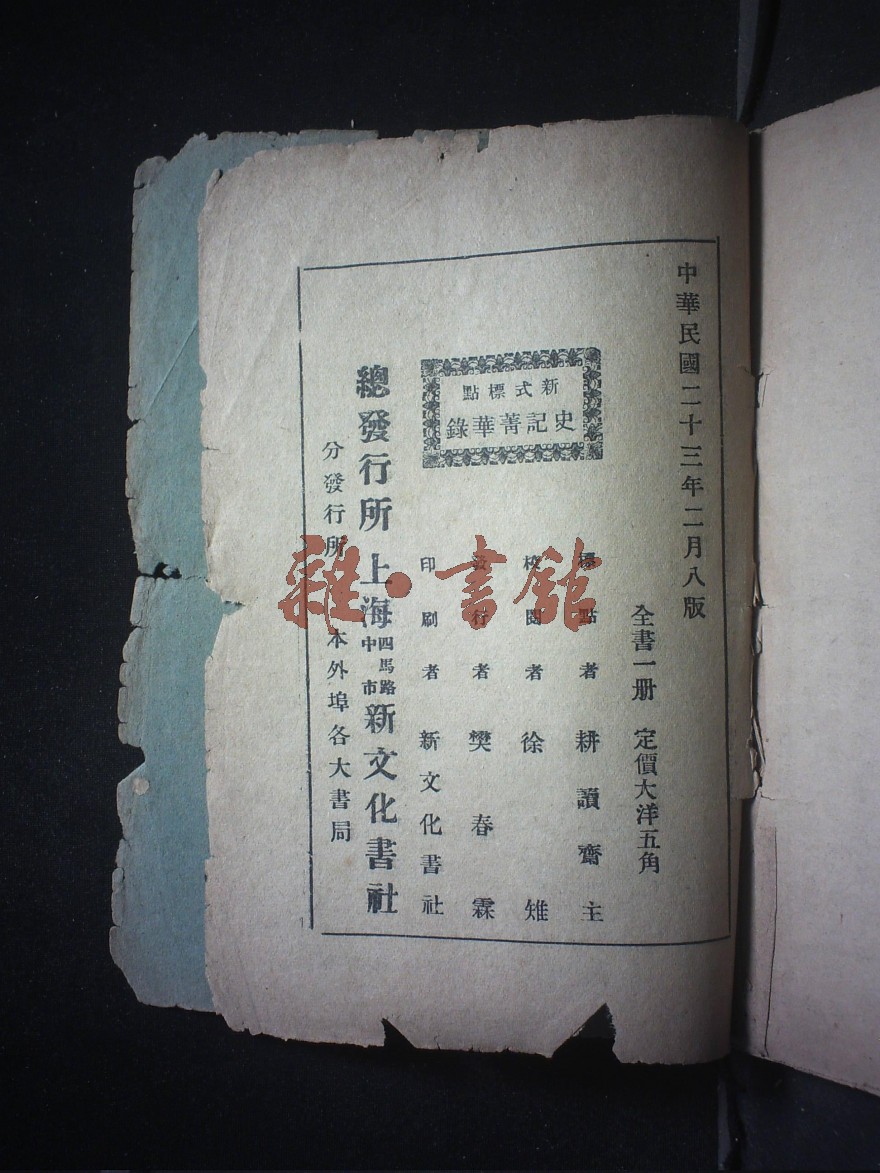 中華民國二十三年二月八版
全書一册 定價大洋五角
新式標點
史記菁華錄
標點者 耕讀齋主
校閱者 徐雉
發行者 樊春霖
印刷者 新文化書社
總發行所 上海四馬路中市新文化書社
分發行所 本外埠各大書局
雜·書館